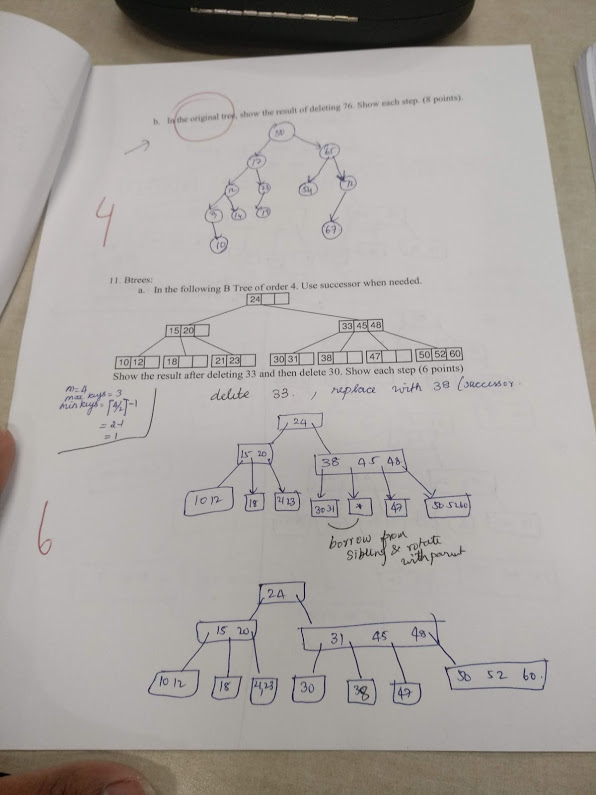 b. In the original tree, show the result of deleting 76. Show each step. (8 points).
50
17
65
12
23
54
72
9
14
19
67
10
4
11. Btrees:
a. In the following B Tree of order 4. Use successor when needed.
24
15 20
33 45 48
10 12
18
21 23
30 31
38
47
50 52 60
Show the result after deleting 33 and then delete 30. Show each step (6 points)
m=4
max keys = 3
min keys = ⌈4/2⌉-1
= 2-1
= 1
delete 33. , replace with 38 (successor.
24
15 20
38 45 48
10 12
18
21 23
30 31
*
47
50 52 60
borrow from
sibling & rotate
with parent
6
24
15 20
31 45 48
10 12
18
21,23
30
38
47
50 52 60.